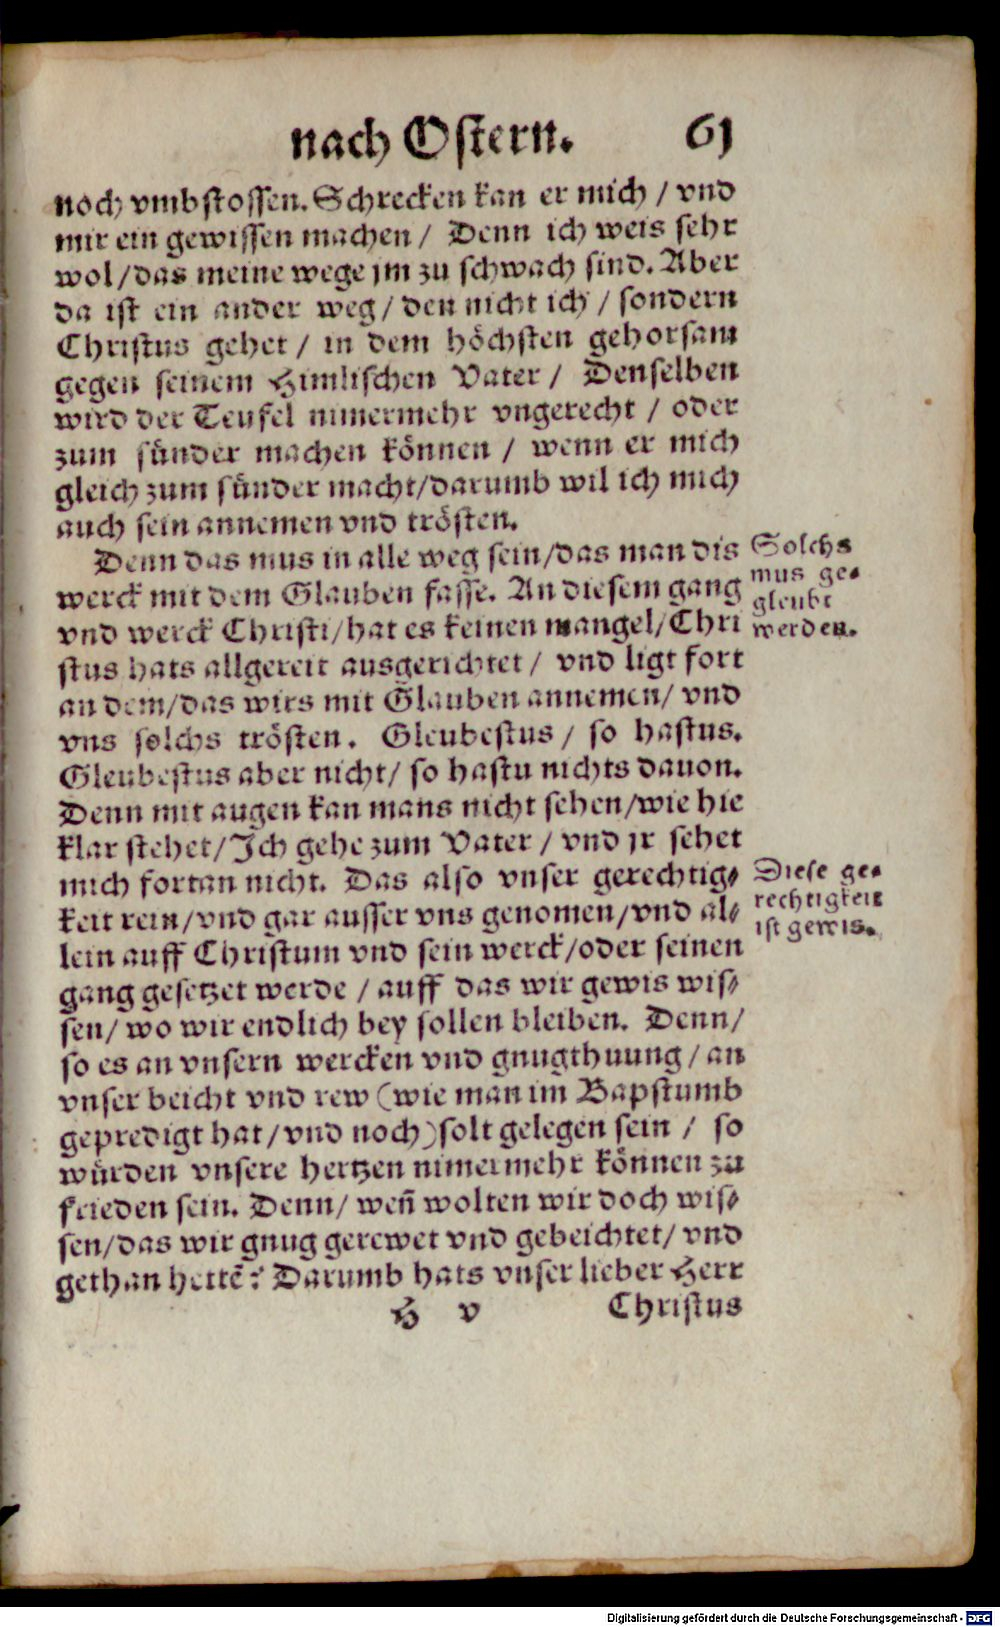 nach Ostern. 61
noch vmbstossen. Schrecken kan er mich / vnd
mir ein gewissen machen / Denn ich weis sehr
wol / das meine wege jm zu schwach sind. Aber
da ist ein ander weg / den nicht ich / sondern
Christus gehet / in dem höchsten gehorsam
gegen seinem Himlischen Vater / Denselben
wird der Teufel nimermehr vngerecht / oder
zum sünder machen können / wenn er mich
gleich zum sünder macht / darumb wil ich mich
auch sein annemen vnd trösten.
Denn das mus in alle weg sein / das man dis
werck mit dem Glauben fasse. An diesem gang
vnd werck Christi / hat es keinen mangel / Chri
stus hats allgereit ausgerichtet / vnd ligt fort
an dem / das wirs mit Glauben annemen / vnd
vns solchs trösten. Gleubestus / so hastus.
Gleubestus aber nicht / so hastu nichts dauon.
Denn mit augen kan mans nicht sehen / wie hie
klar stehet / Ich gehe zum Vater / vnd jr sehet
mich fortan nicht. Das also vnser gerechtig⸗
keit rein / vnd gar ausser vns genomen / vnd al⸗
lein auff Christum vnd sein werck / oder seinen
gang gesetzet werde / auff das wir gewis wis⸗
sen / wo wir endlich bey sollen bleiben. Denn /
so es an vnsern wercken vnd gnugthuung / an
vnser beicht vnd rew (wie man im Bapstumb
gepredigt hat / vnd noch) solt gelegen sein / so
würden vnsere hertzen nimermehr können zu
frieden sein. Denn / weñ wolten wir doch wis⸗
sen / das wir gnug gerewet vnd gebeichtet / vnd
gethan hettẽ? Darumb hats vnser lieber Herr
H v Christus
Solchs
mus ge⸗
gleubt
werden.
Diese ge⸗
rechtigkeit
ist gewis.
Digitalisierung gefördert durch die Deutsche Forschungsgemeinschaft - DFG